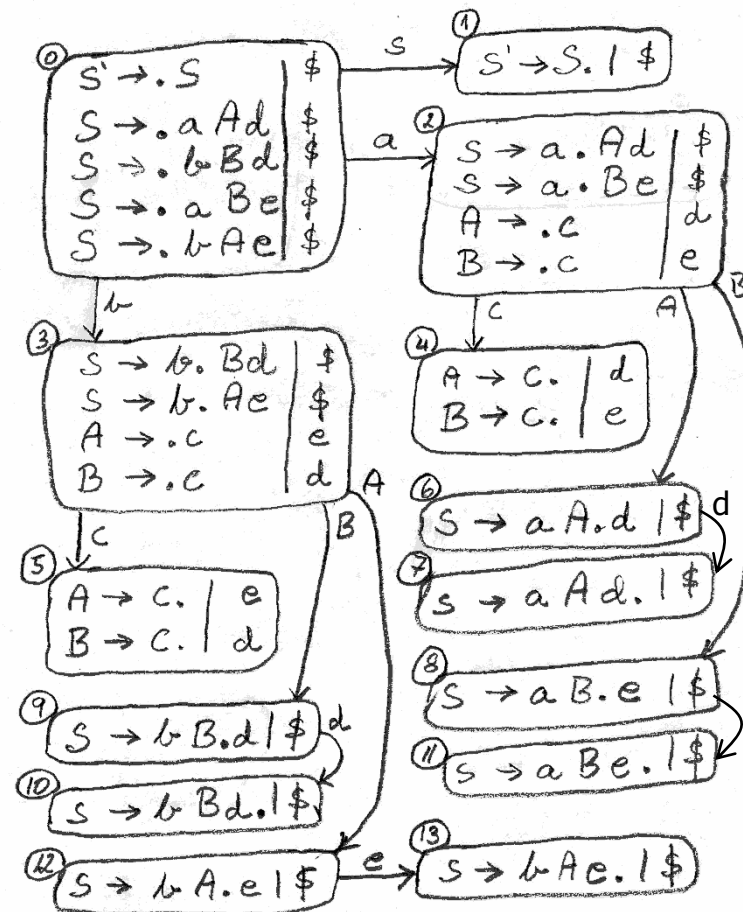 0
S' → .S | $
S → .aAd | $
S → .bBd | $
S → .aBe | $
S → .bAe | $
S
1
S' → S. | $
a
2
S → a.Ad | $
S → a.Be | $
A → .c | d
B → .c | e
b
c
A
B
3
S → b.Bd | $
S → b.Ae | $
A → .c | e
B → .c | d
4
A → c. | d
B → c. | e
c
B
A
5
A → c. | e
B → c. | d
6
S → aA.d | $
d
7
S → aAd. | $
8
S → aB.e | $
9
S → bB.d | $
d
10
S → bBd. | $
11
S → aBe. | $
12
S → bA.e | $
e
13
S → bAe. | $